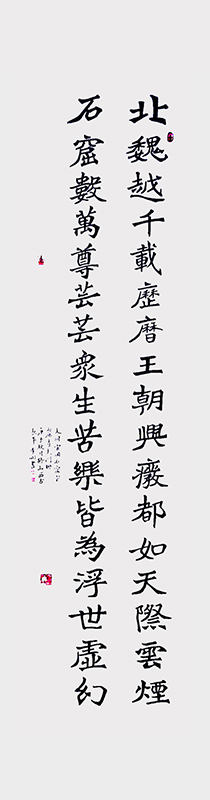 北魏越千載歷曆王朝興廢都如天際雲煙
石窟數萬尊芸芸衆生苦樂皆為浮世虛幻